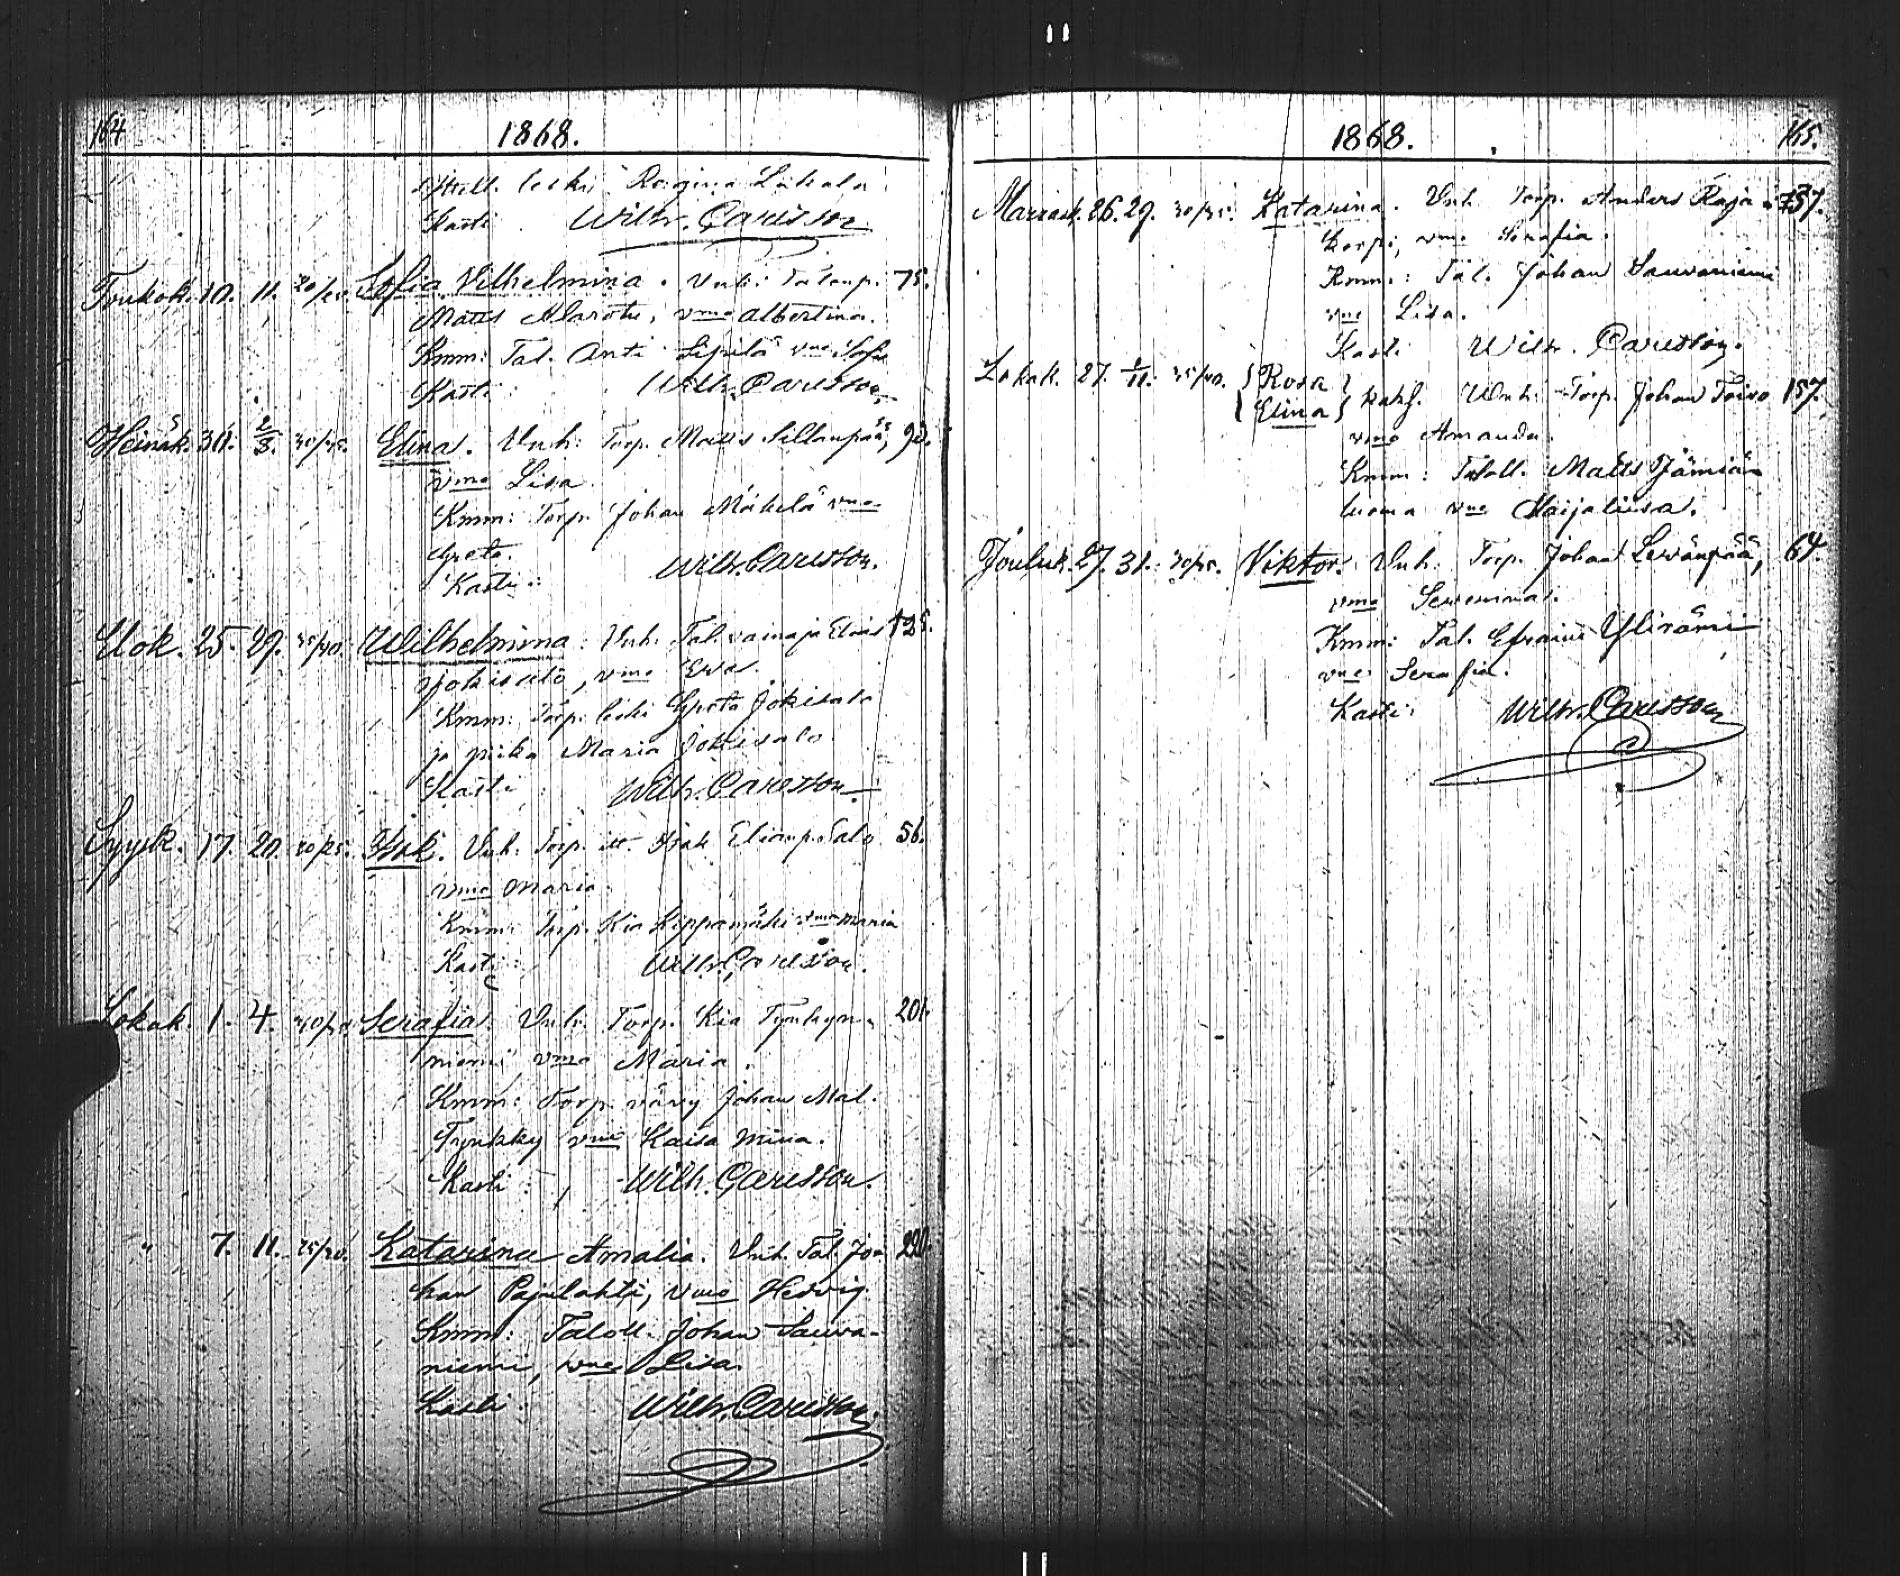 164
1868.
leski Regina
Kasti Wilh. Carlsson
Toukok. 10. 11. 20/25. Sofia Vilhelmina. Vnh: 75.
Matts Alarotu, vmo Albertina.
Kmm: Tal. Anti Sipilä vmo Sofia
Kasti Wilh. Carlsson
Heinäk. 30. 2/8. 30/35. Elina. Vnh: Torp. Matts Sillanpää, 92.
vmo Lisa
Kmm: Torp. Johan Mäkelä vmo
Greta.
Kasti: Wilh. Carlsson.
Elok. 25. 29. 35/40. Wilhelmina: Vnh. Tal. vainaja Elias 125.
Jokisalo, vmo Ewa.
Kmm: Torp. leski Greta Jokisalo
ja piika Maria Jokisalo
Kasti: Wilh. Carlsson.
Syysk. 17. 20. 20/25. Isak. Vnh. Torp. itt. Isak 56.
vmo Maria.
Kmm: Torp. Kia Leppämäki vmo Maria
Kasti: Wilh. Carlsson.
Lokak. 1. 4. Serafia. Vnh. Torp. Kia 201.
niemi, vmo Maria.
Kmm: Torp. Johan Mal.
Tynkky vmo Kaisa Mina.
Kasti: Wilh. Carlsson.
" 7. 11. 25/30. Katarina Amalia. Vnh. Tal. Jo- 220.
han Pajulahti, vmo Hedvig.
Kmm: Taloll. Johan Sauva-
niemi, vmo Lisa.
Kasti Wilh. Carlsson.
1868.
165.
Marrask. 26. 29. 30/35. Katarina. Vnh. Torp. Anders Raja- 237.
korpi, vmo Serafia.
Kmm.: Tal. Johan Sauvaniemi
vmo Lisa.
Kasti Wilh. Carlsson.
Lokak. 27. 1/11. 35/40. {Rosa}
{Elina} kaks. Vnh. Torp. Johan Toivo 157.
vmo Amanda.
Kmm: Taloll. Matts Jämiän
luoma vmo Maijaliisa.
Jouluk. 27. 31. 30/35. Viktor. Vnh. Torp. Johan Levänpää, 64.
vmo
Kmm: Tal. Efraim Ylirämi
vmo Serafia.
Kasti: Wilh. Carlsson